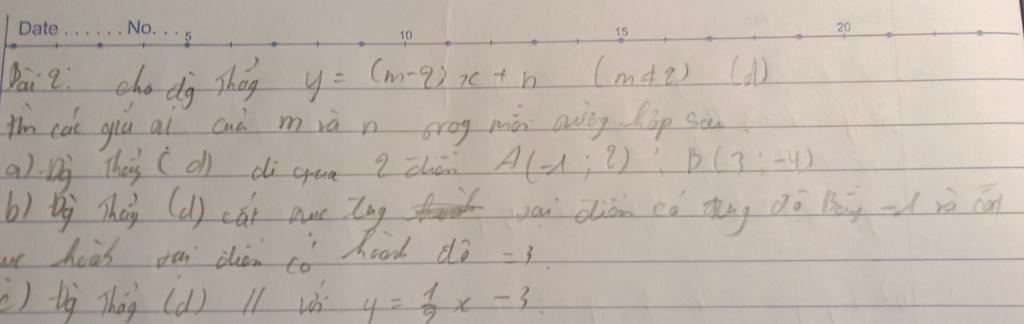 Date ...... No. ... 5 10 15 20
Bài 2: cho đg thẳg y = (m-2) x + n (m ≠ 2) (d)
tìm các giá ại của m và n org mỗi ường hợp sau
a) Đg thẳg (d) đi qua 2 điểm A(-1 ; 2) ; B(3 ; -4)
b) Đg thẳg (d) cắt ục tug tại điểm có tug độ bằng -1 và cắt
ục hoàh tại điểm có hoàh độ = 3.
c) Đg thẳg (d) // với y = 1/2 x - 3